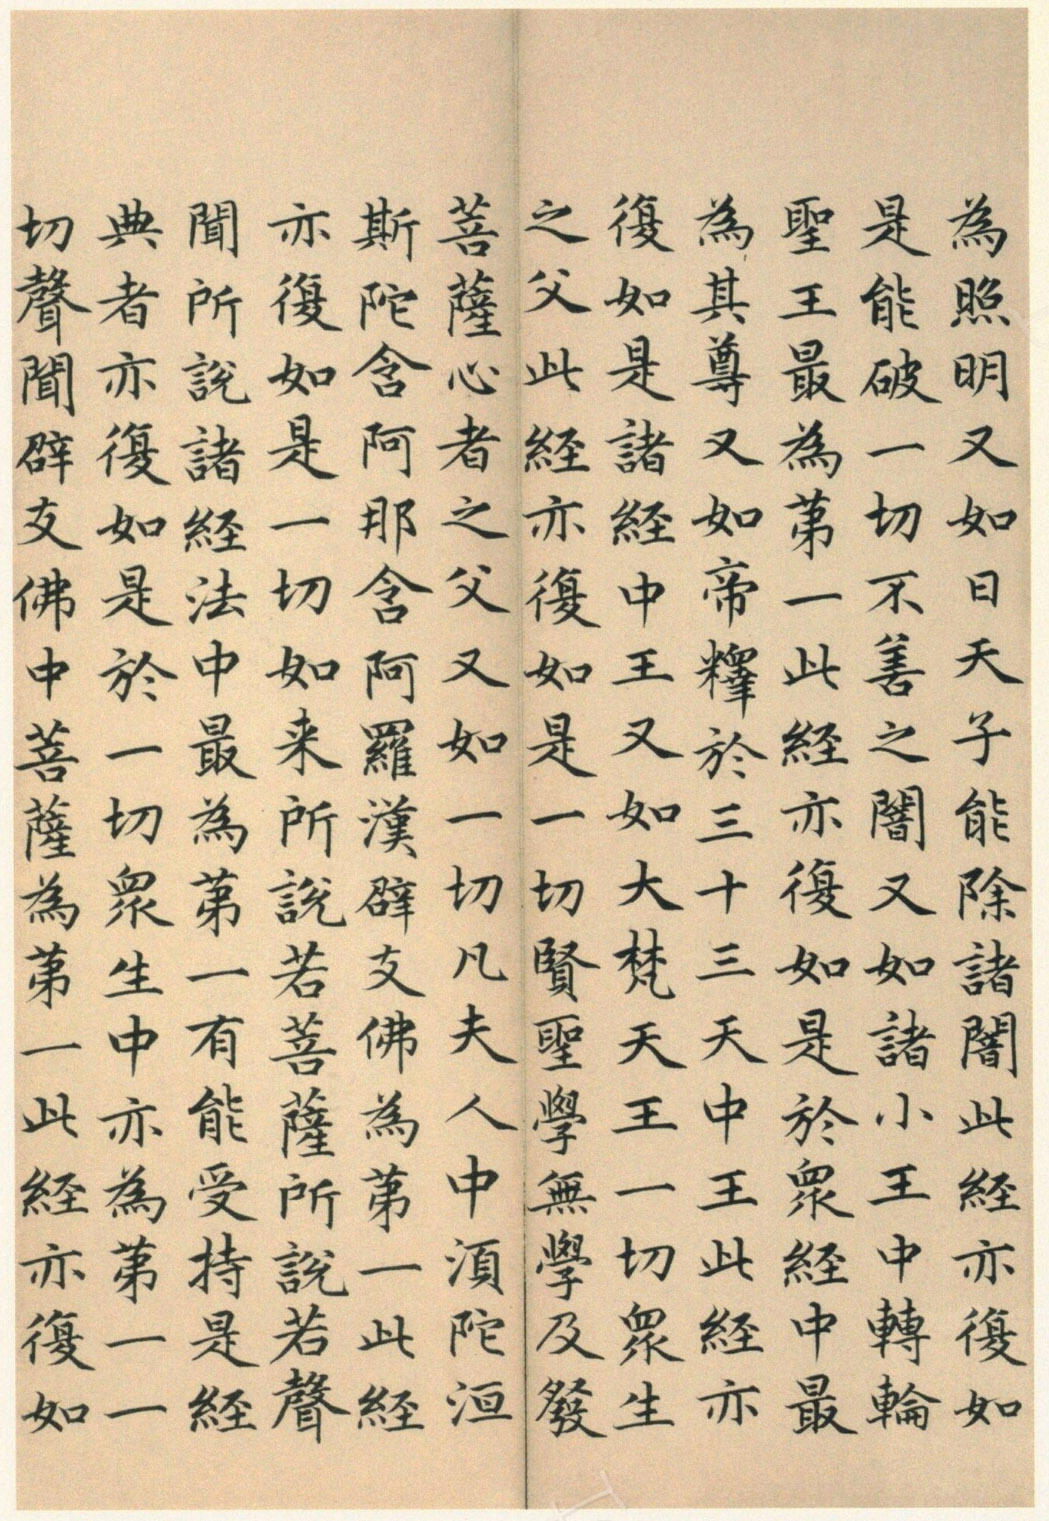 為照明又如日天子能除諸闇此経亦復如
是能破一切不善之闇又如諸小王中轉輪
聖王最為第一此経亦復如是於眾経中最
為其尊又如帝釋於三十三天中王此経亦
復如是諸経中王又如大梵天王一切眾生
之父此経亦復如是一切賢聖學無學及發
菩薩心者之父又如一切凡夫人中湏陀洹
斯陀含阿那含阿羅漢辟支佛為第一此経
亦復如是一切如来所說若菩薩所說若聲
聞所說諸経法中最為第一有能受持是経
典者亦復如是於一切眾生中亦為第一一
切聲聞辟支佛中菩薩為第一此経亦復如